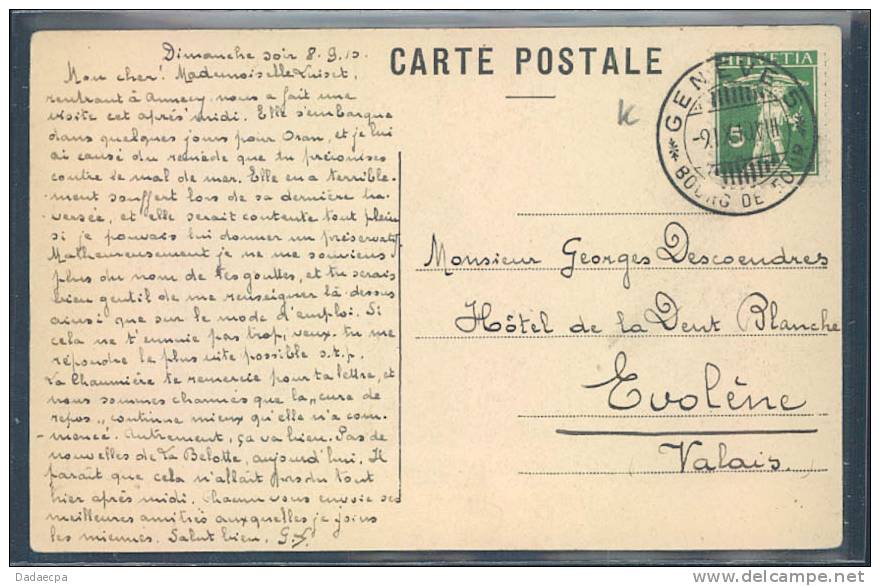 Dimanche soir 8.9.10.
CARTE POSTALE
Mon cher! Mademoiselle Luiset,
rentrant à Annecy nous a fait une
visite cet après midi. Elle s'embarque
dans quelques jours pour Oran, et je lui
ai causé du remède que tu préconises
contre le mal de mer. Elle en a terrible-
ment souffert lors de sa dernière tra-
versée, et elle serait contente tout plein
si je pouvais lui donner un préservatif.
Malheureusement je ne me souviens
plus du nom de tes gouttes, et tu serais
bien gentil de me renseigner là-dessus
ainsi que sur le mode d'emploi. Si
cela ne t'ennuie pas trop, veux-tu me
répondre le plus vite possible s.t.p.
La Chaumière te remercie pour ta lettre, et
nous sommes charmés que la „cure de
repos„ continue mieux qu'elle n'a com-
mencé. Autrement, ça va bien. Pas de
nouvelles de La Belotte, aujourd'hui. Il
paraît que cela n'allait pas du tout
hier après midi. Chacun vous envoie ses
meilleures amitiés auxquelles je joins
les miennes. Salut bien.
HELVETIA
5
GENÈVE 5
BOURG DE FOUR
K
Monsieur Georges Descoendres
Hôtel de la Dent Blanche
Evolène
Valais.
Dadaecpa
http://www.delcampe.net